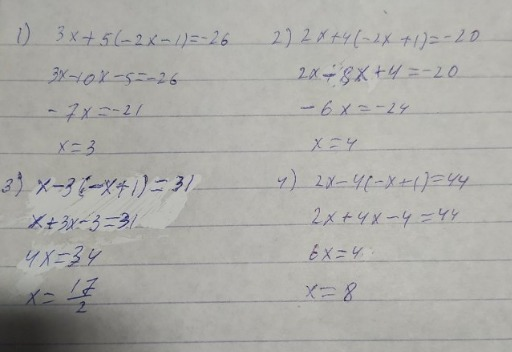 1) 3x+5(-2x-1)=-26
3x-10x-5=-26
-7x=-21
x=3
2) 2x+4(-2x+1)=-20
2x-8x+4=-20
-6x=-24
x=4
3) x-3(-x+1)=31
x+3x-3=31
4x=34
x=17/2
4) 2x-4(-x+1)=44
2x+4x-4=44
6x=4
x=8